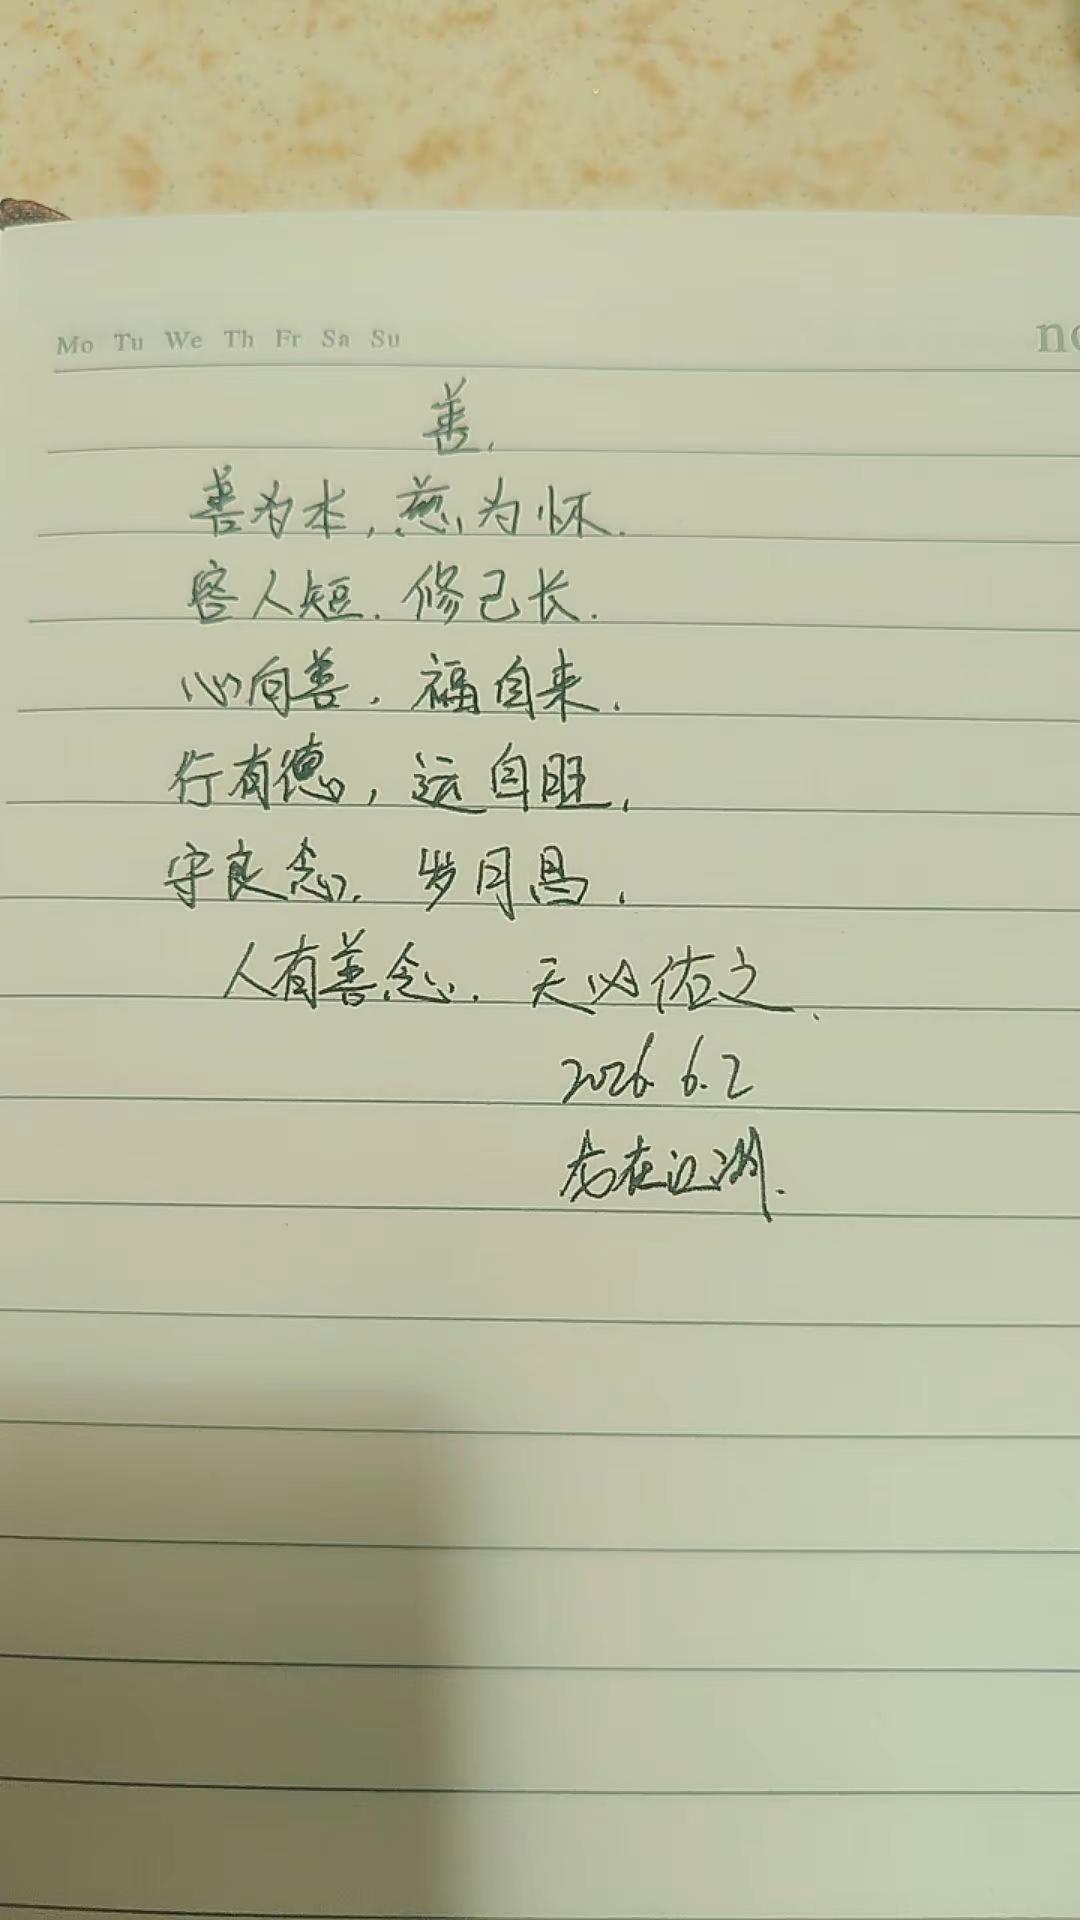 Mo Tu We Th Fr Sa Su
善.
善为本,慈为怀.
容人短.修己长.
心向善.福自来.
行有德,运自旺,
守良念.岁月昌.
人有善念.天必佑之.
2026.6.2